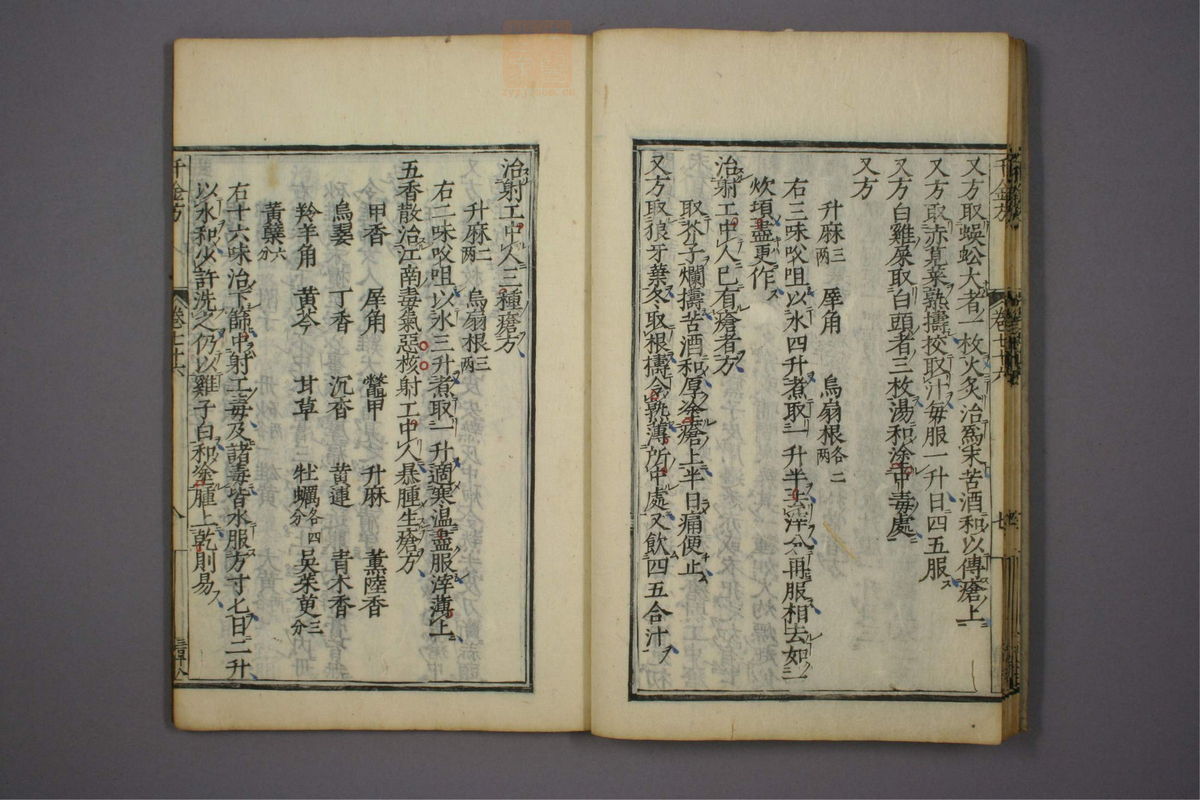 又方取蜈蚣大者一枚火炙治爲末苦酒和以傅瘡上
又方取赤莧莖葉熟擣挍取汁每服一升日四五服
又方白雞屎取白頭者三枚湯和塗中毒處
又方
升麻三兩 犀角 烏扇根各二兩
右三味㕮咀以水四升煮取一升半去滓分再服相去如一
炊頃盡更作
治射工中人已有瘡者方
取芥子爛擣苦酒和厚塗瘡上半日痛便止
又方取狼牙葉冬取根擣令熟薄所中處又飲四五合汁
千金方 卷七十六 七
治射工中人三種瘡方
升麻二兩 烏扇根三兩
右二味㕮咀以水三升煮取一升適寒温盡服滓薄上
五香散治江南毒氣惡核射工中人暴腫生瘡方
甲香 犀角 鱉甲 升麻 薫陸香
烏翣 丁香 沉香 黃連 青木香
羚羊角 黃芩 甘草 牡蠣各四分 吳茱萸三分
黃蘗六分
右十六味治下篩中射工毒及諸毒皆水服方寸七日二升
以水和少許洗之仍以雞子白和塗腫上乾則易
千金方 卷七十六 八